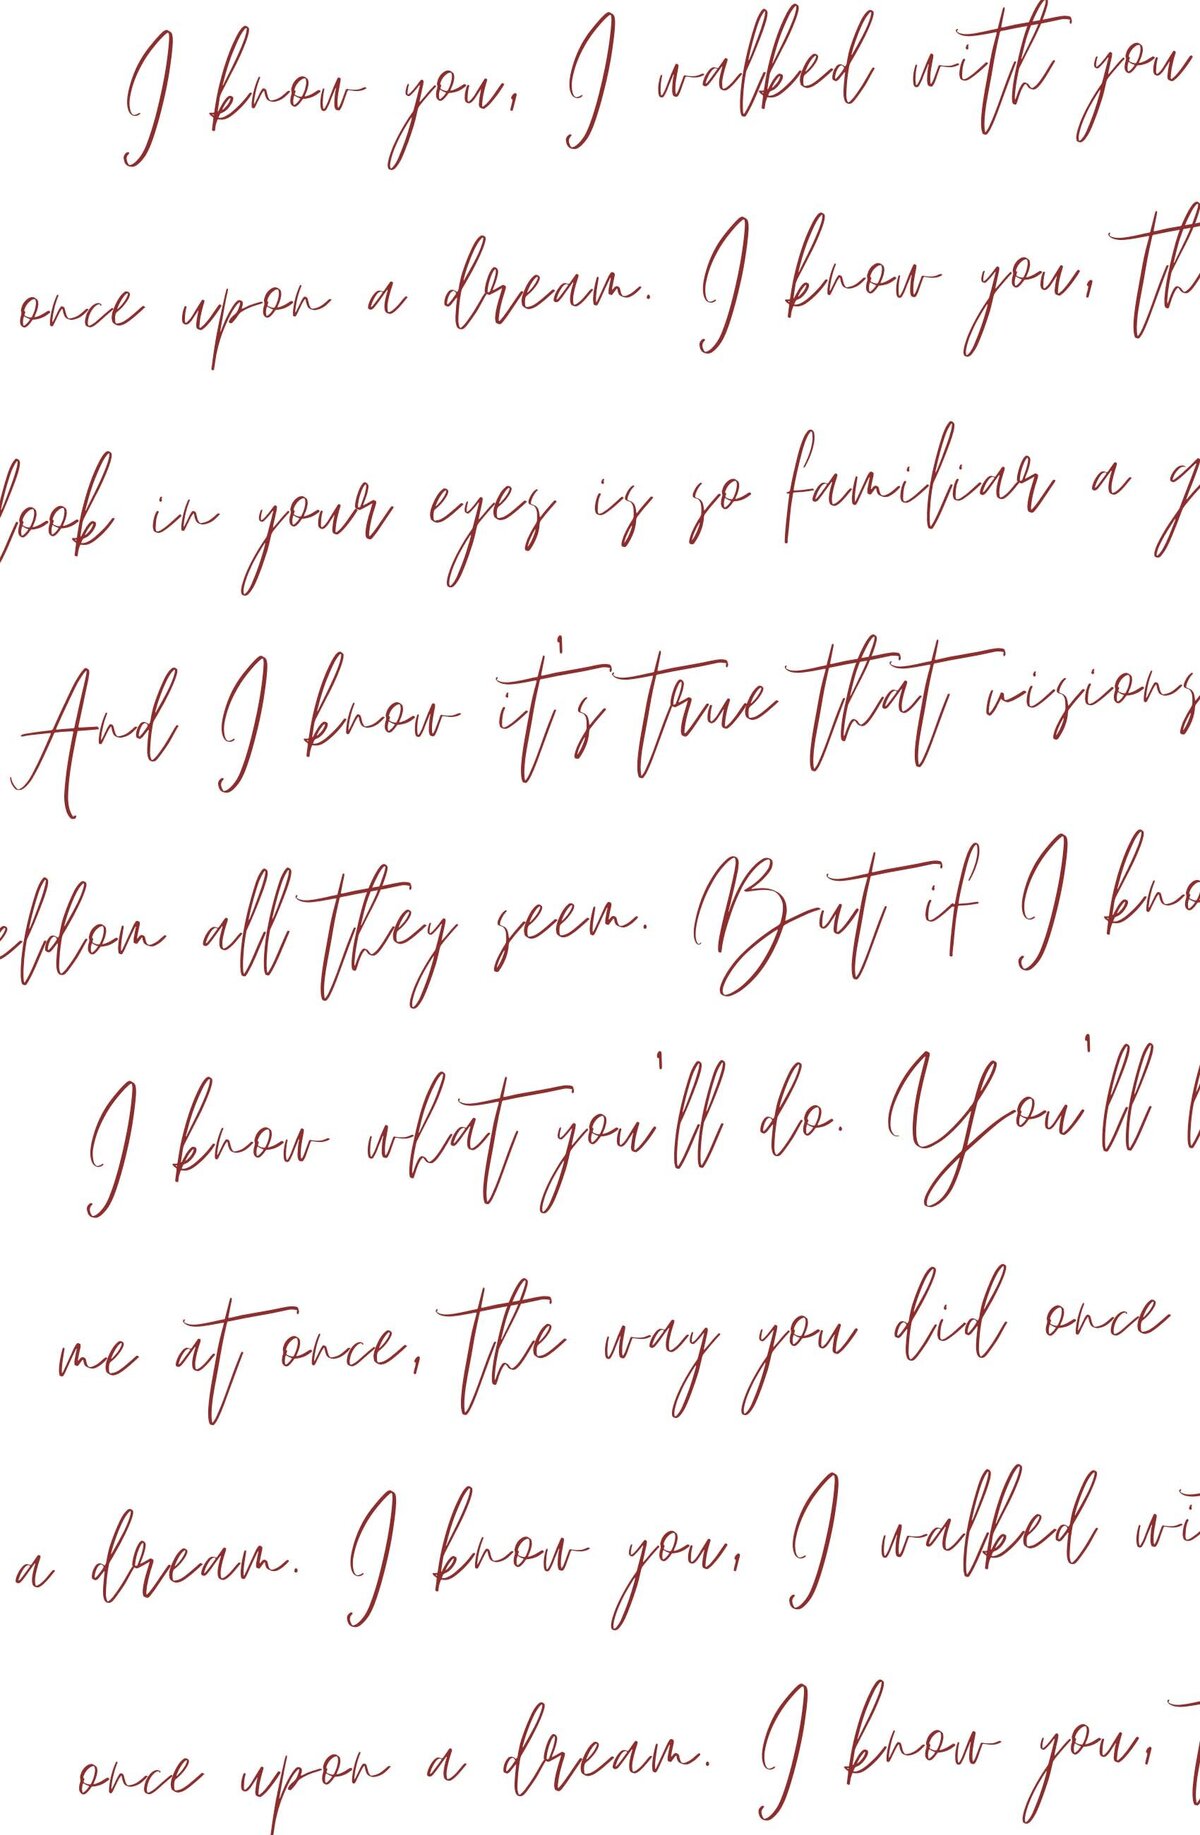 I know you, I walked with you
once upon a dream. I know you, th
look in your eyes is so familiar a g
And I know it's true that visions
eldom all they seem. But if I kno
I know what you'll do. You'll l
me at once, the way you did once
a dream. I know you, I walked wi
once upon a dream. I know you, t